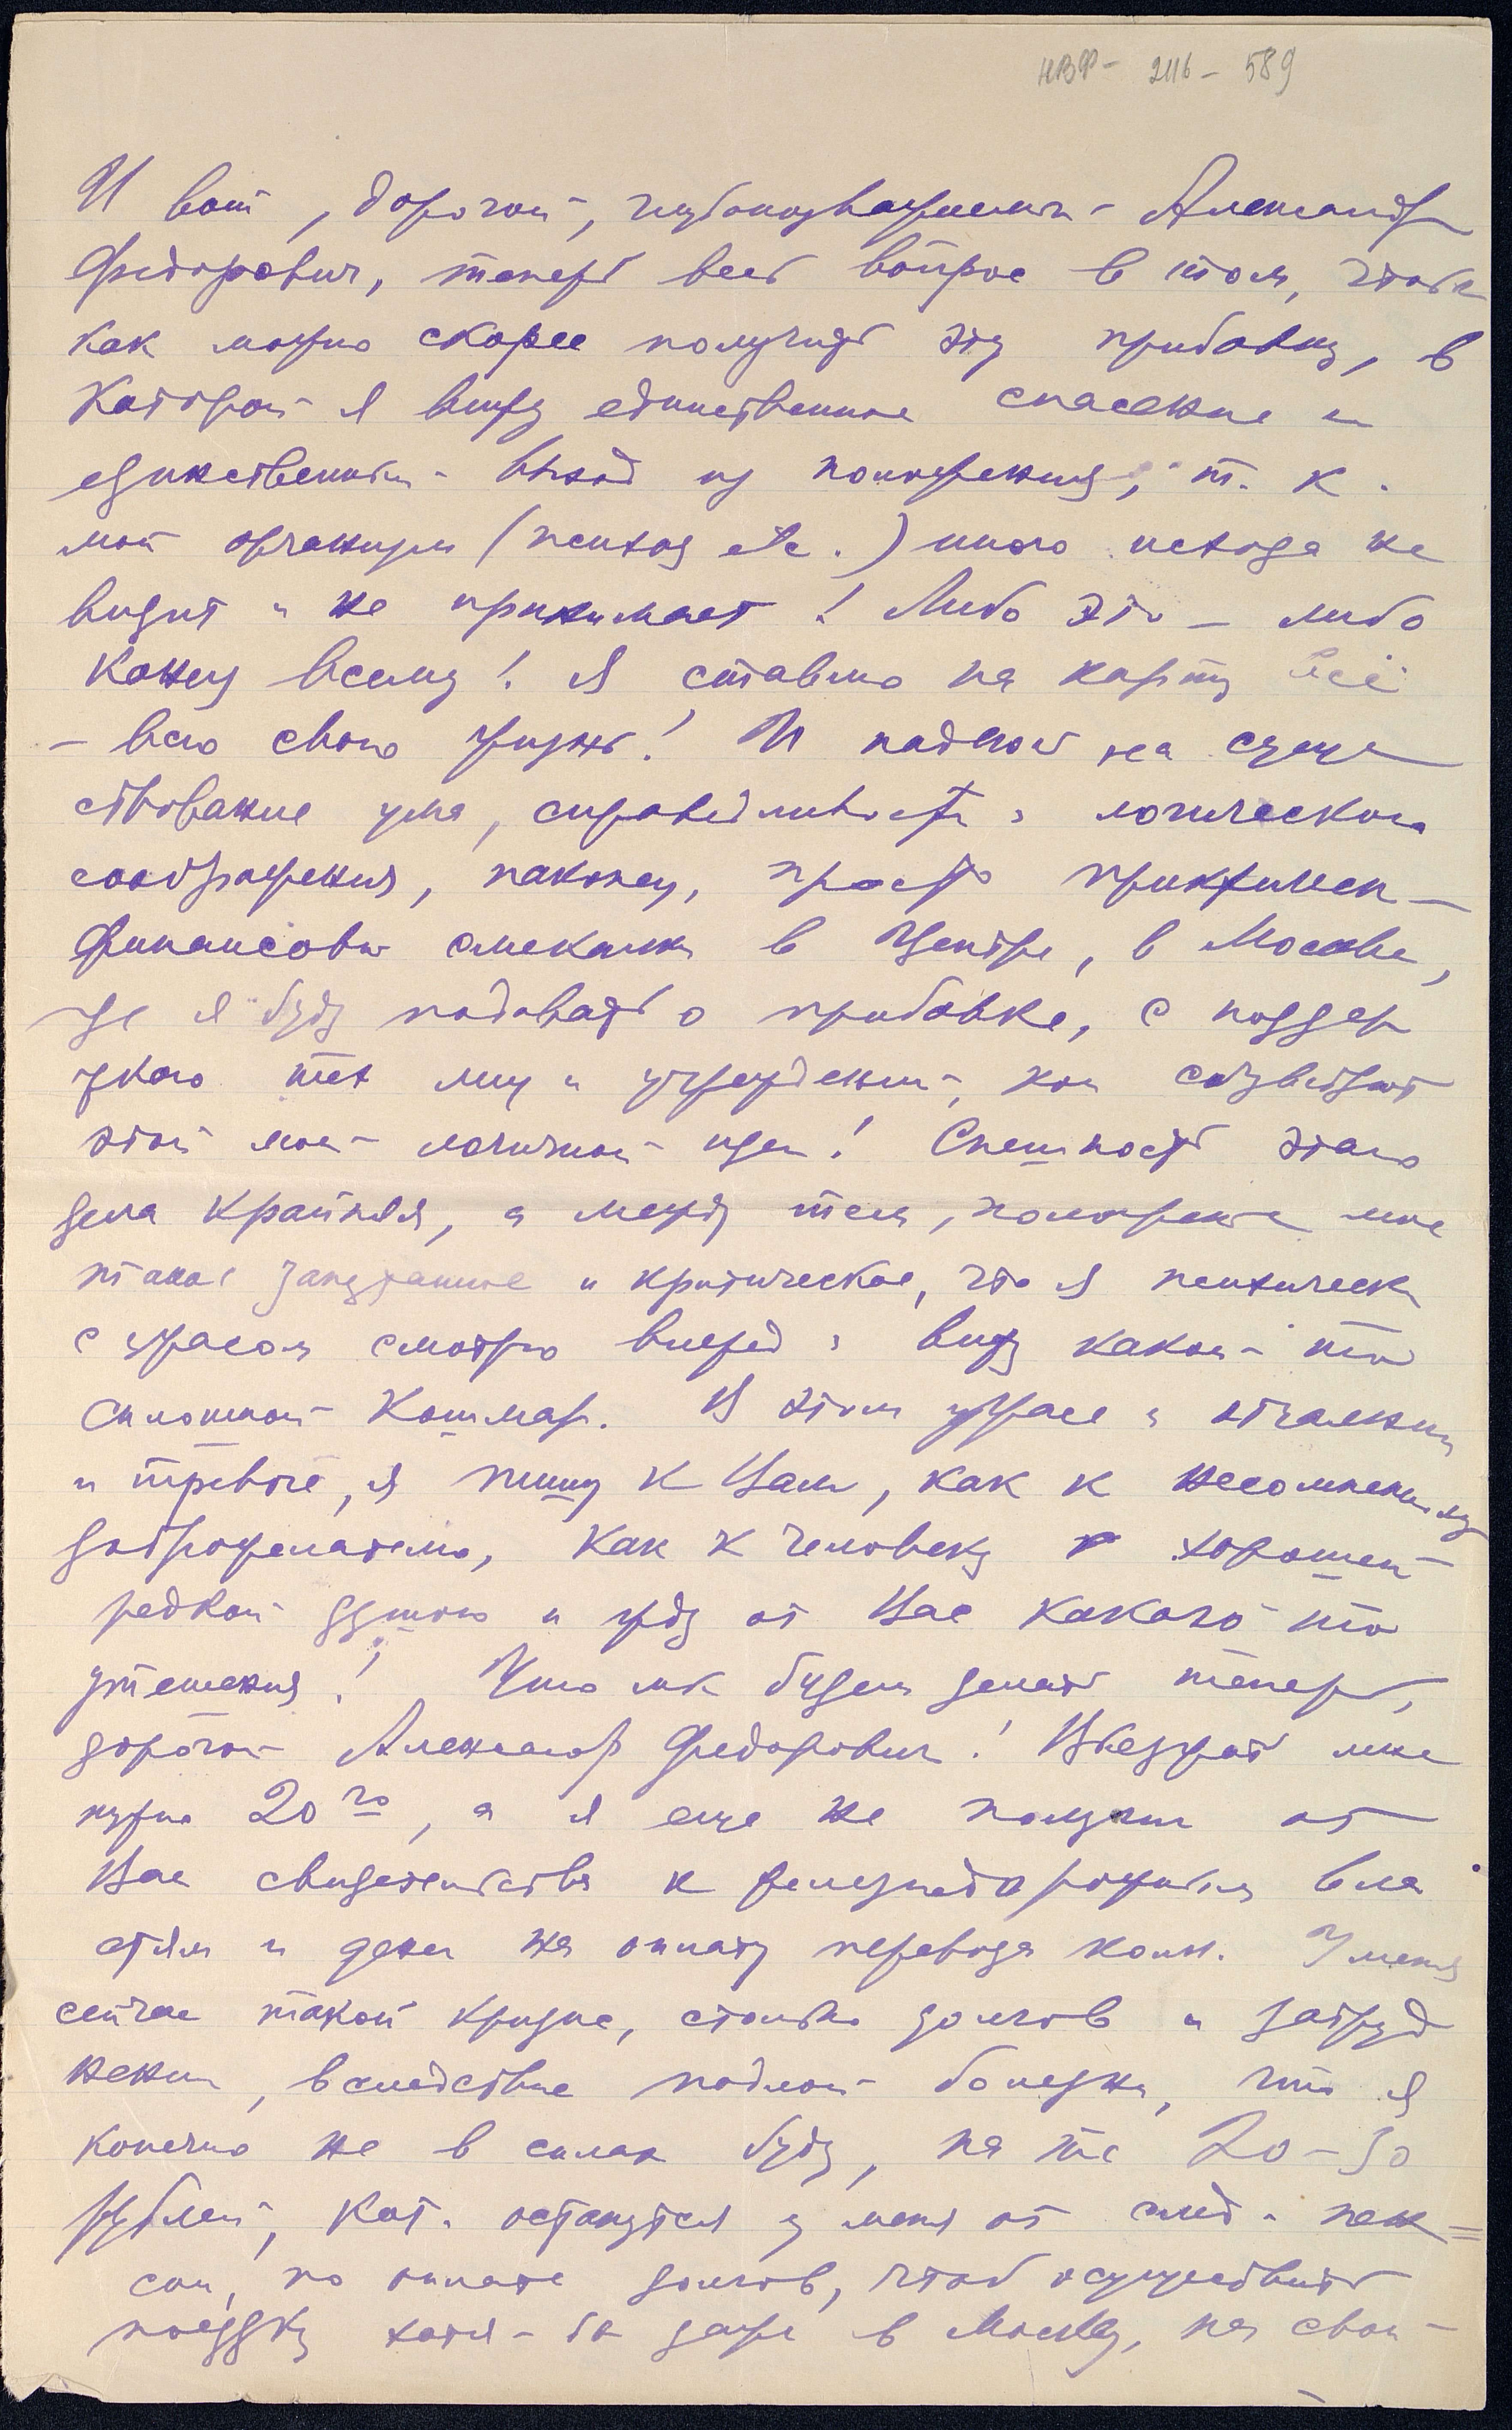 НВФ - 2116 - 589
И вот, дорогой, глубокоуважаемый Александр
Федорович, теперь весь вопрос в том, чтобы
как можно скорее получить эту прибавку, в
которой я вижу единственное спасение и
единственный выход из положения, т. к.
мой организм (психоз etc.) иного исхода не
видит и не принимает! Либо это – либо
конец всему! Я ставлю на карту всё
– всю свою жизнь! И надеюсь на суще
ствование ума, справедливости и логического
соображения, наконец, просто практическ–
финансовой смекалки в Центре, в Москве,
где я буду подавать о прибавке, с поддер
жкою тех лиц и учреждений, кои сочувствуют
этой моей логичной идеи! Спешность этого
дела крайняя, а между тем, положение мое
такое запутанное и критическое, что я психически
с ужасом смотрю вперед и вижу какой-то
сплошной кошмар. В этом ужасе и отчаянии
и тревоге, я пишу к Вам, как к несомненному
доброжелателю, как к человеку с хорошей
редкой душою и жду от Вас какого то
утешения! Что мы будем делать теперь,
дорогой Александр Федорович! Выезжать мне
нужно 20го, а я еще не получил от
Вас свидетельства к железнодорожным вла
стям и денег на оплату перевода комн. У меня
сейчас такой кризис, столько долгов и затруд
нений, вследствие подлой болезни, что я
конечно не в силах буду, на те 20–30
рублей, кот. останутся у меня от след. пен=
сии, по оплате долгов, чтоб осуществить
поездку хотя-бы даже в Москву, на свои